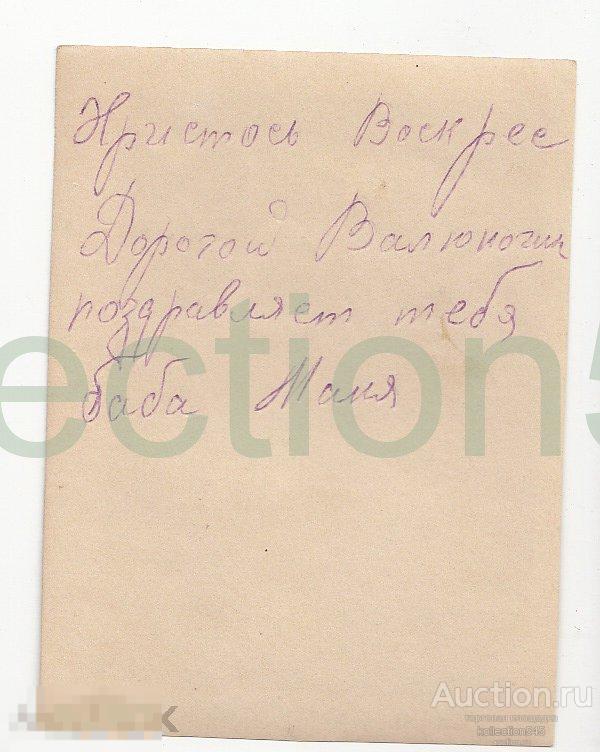 Христось Воскрес
Дорогой Валюночик
поздравляет тебя
баба Маня
ection5
Auction.ru
торговая площадка
kollection545